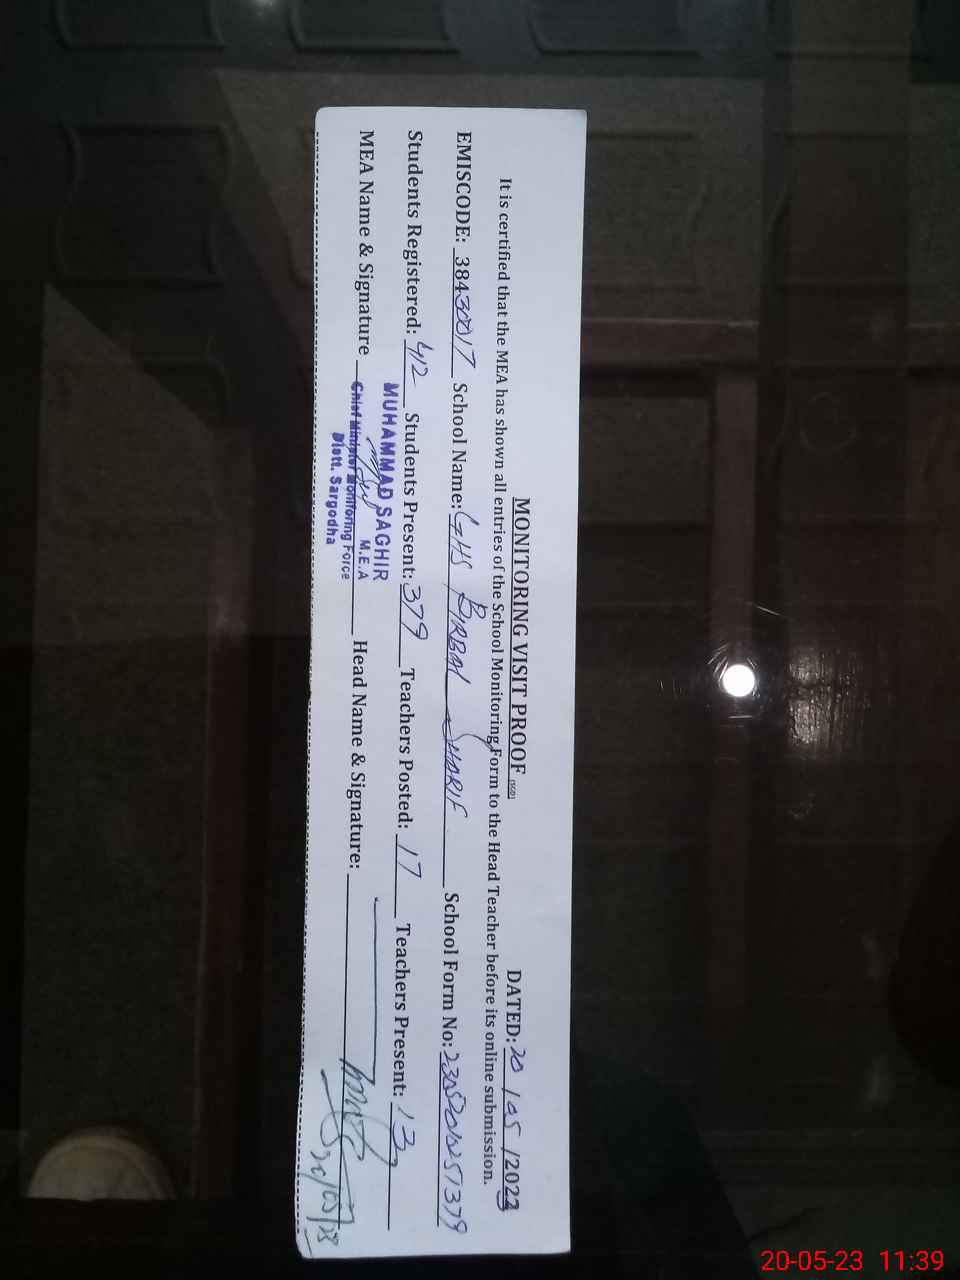 MONITORING VISIT PROOF (SGD) DATED: 20 / 05 / 2023
It is certified that the MEA has shown all entries of the School Monitoring Form to the Head Teacher before its online submission.
EMISCODE: 38430017 School Name: GHS BIRBAL SHARIF School Form No:
Students Registered: 412 Students Present: 379 Teachers Posted: 17 Teachers Present: 13
MEA Name & Signature Head Name & Signature:
MUHAMMAD SAGHIR
M.E.A
Chief Minister Monitoring Force
Distt. Sargodha
20-05-23 11:39